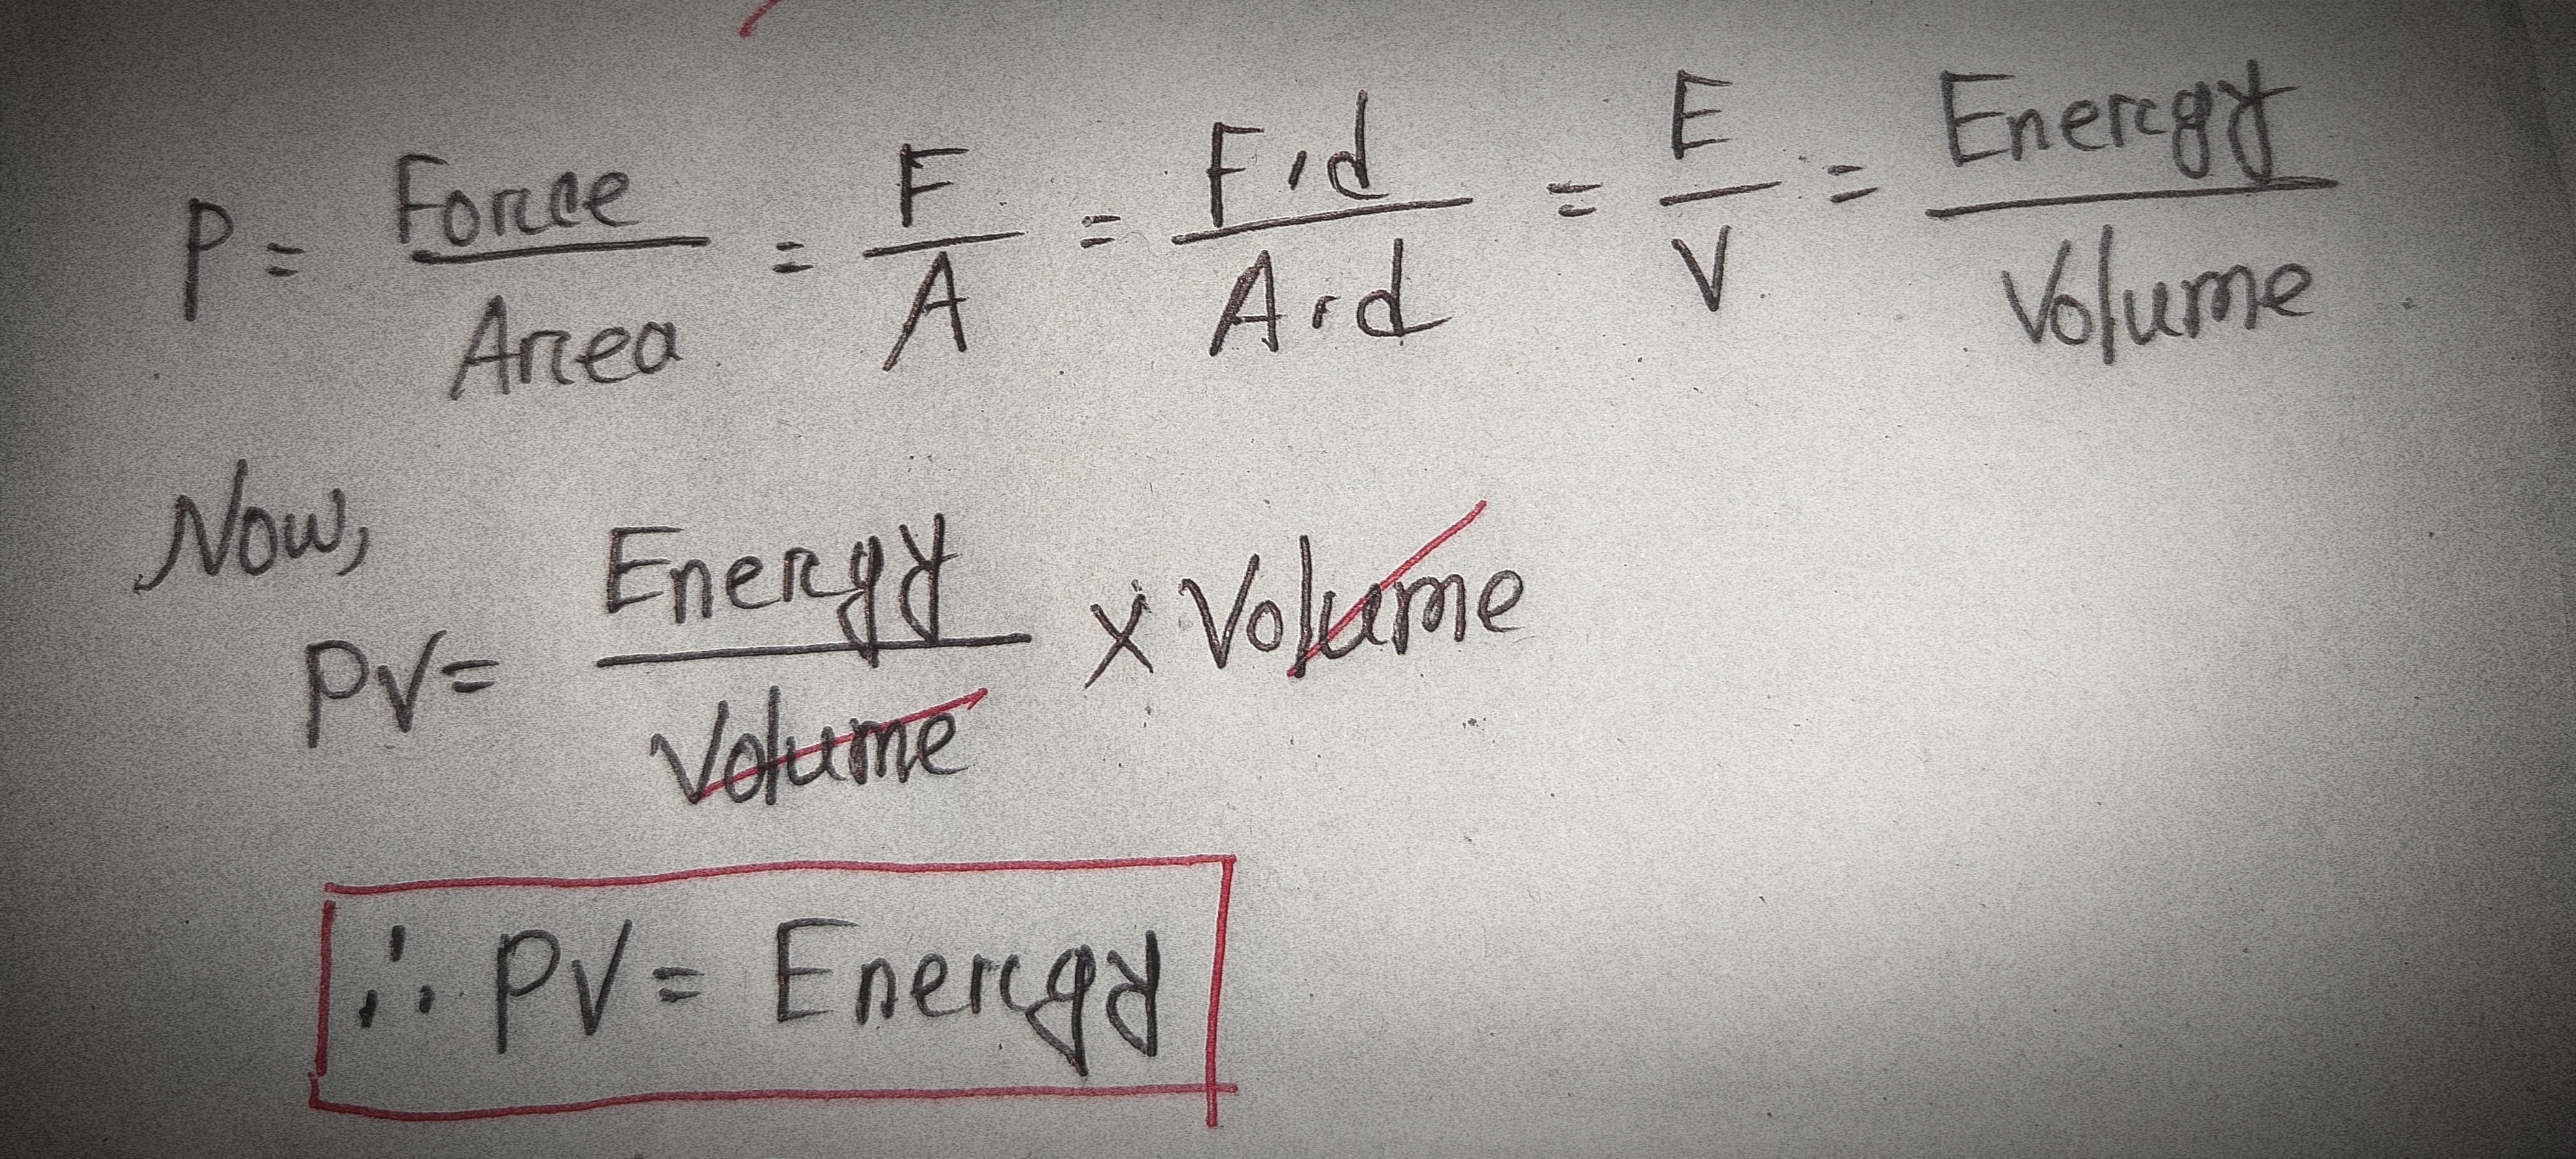 P = Force/Area = F/A = F.d/A.d = E/V = Energy/Volume
Now,
PV = Energy/Volume x Volume
∴ PV = Energy